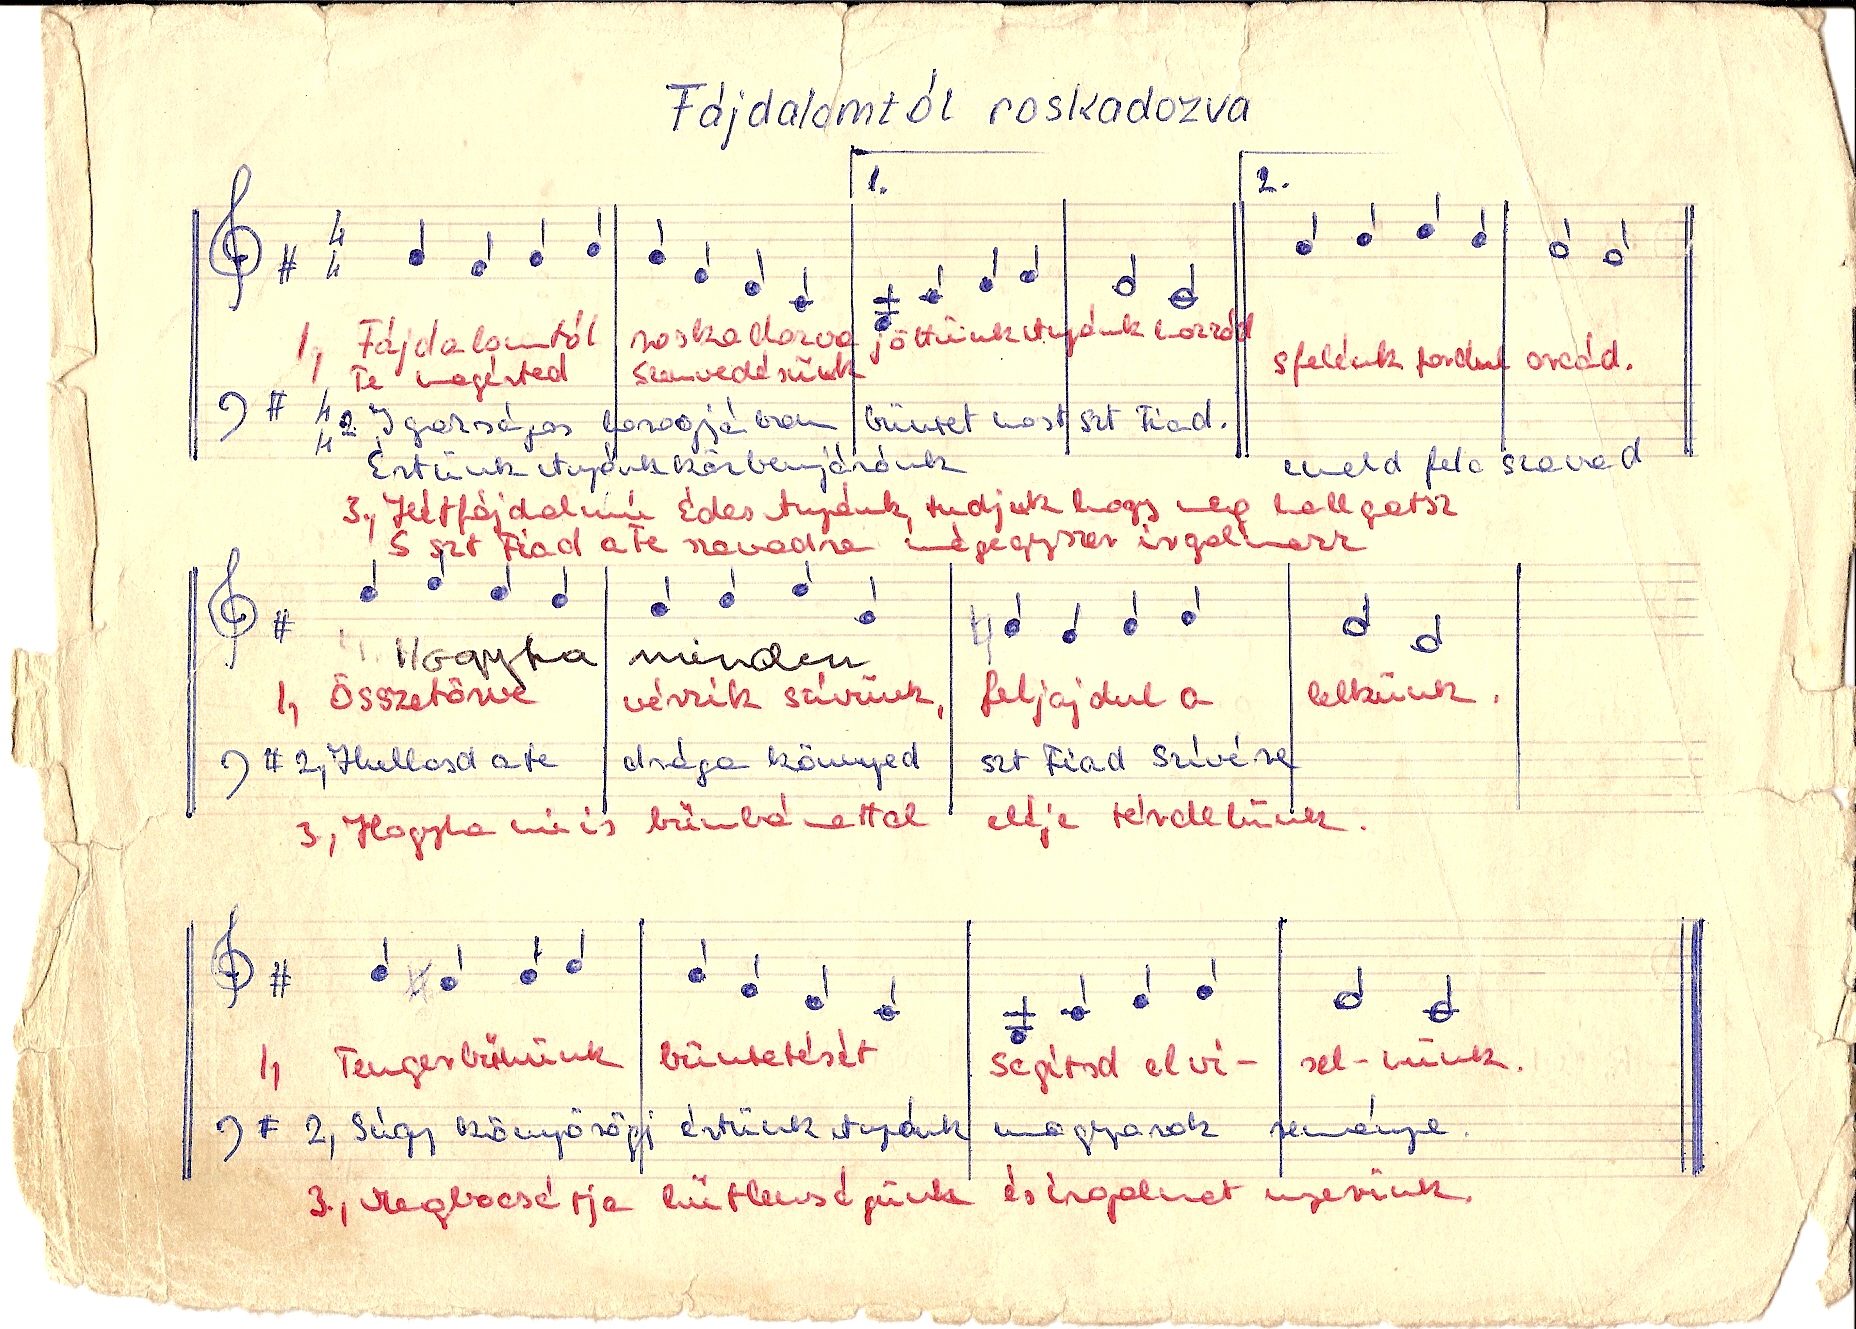 Fájdalomtól roskadozva
1.
2.
4
4
1, Fájdalomtól roskadozva jöttünk Anyánk hozzád
Te megérted Szenvedésünk sfelénk fordul orcád.
4
4
2. Igazságos haragjában büntet most szt Fiad.
Értünk Anyánk közbenjárónk emeld fele szavad
3., Hétfájdalmú édes Anyánk, tudjuk hogy meg hallgatsz
S szt Fiad a Te szavadra mégegyszer irgalmazz
Hogyha minden
1, Összetörve vérzik szívünk, feljajdul a lelkünk.
2, Hullasd a te drága könnyed szt Fiad Szívére
3, Hogyha mi is bűnbánattal eléje térdelünk.
1, Tengerbűnünk büntetését segítsd elvi- sel-nünk.
2, Súgy könyörögj értünk Anyánk magyarok reménye.
3., Megbocsátja hűtlenségünk és irgalmat nyerünk.